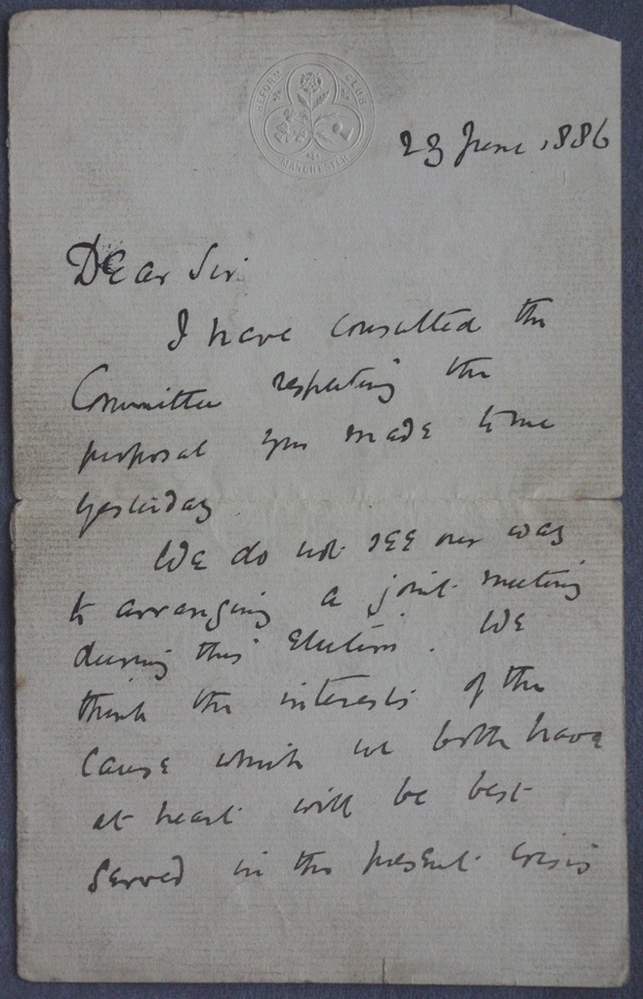 REFORM CLUB
MANCHESTER
23 June 1886
Dear Sir
I have consulted the
Committee respecting the
proposal you made to me
yesterday.
We do not see our way
to arranging a joint meeting
during this Election. We
think the interests of the
cause which we both have
at heart will be best
served in the present crisis